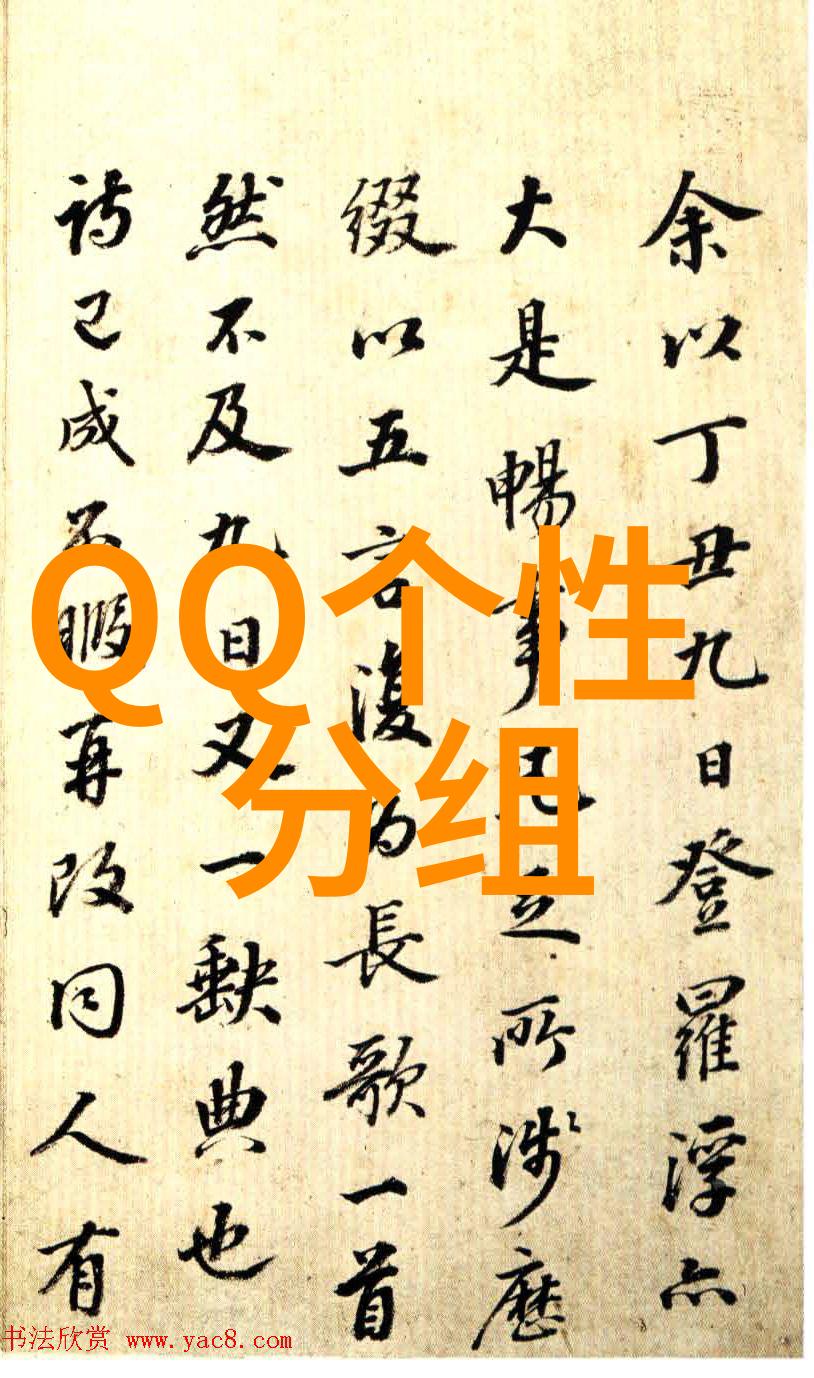 余以丁丑九日登羅浮亦
大是暢事凡足所涉歷
綴以五言復為長歌一首
然不及九日又一缺典也
詩已成不再改同人有
QQ个性
分组
书法欣赏 www.yac8.com